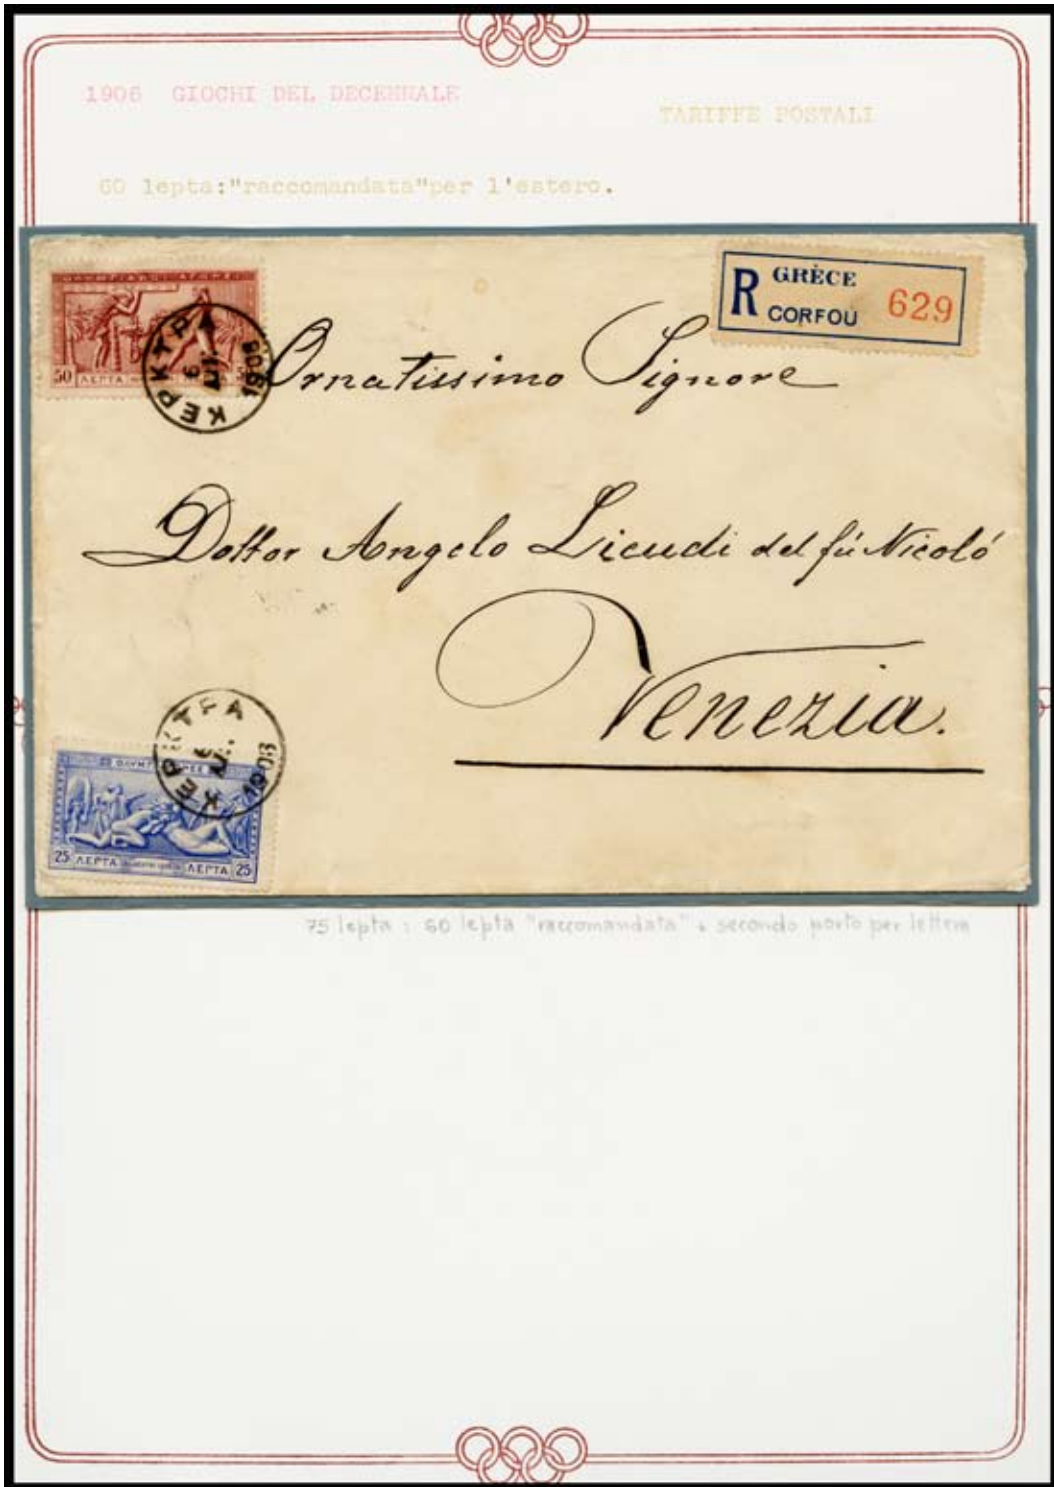 1906 GIOCHI DEL DECENNALE
TARIFFE POSTALI
60 lepta:"raccomandata"per l'estero.
R GRÈCE
CORFOU 629
50 ΛΕΠΤΑ
ΚΕΡΚΥΡΑ
6
1908
Ornatissimo Signore
Dottor Angelo Licudi del fù Nicoló
Venezia.
ΚΕΡΚΥΡΑ
6
1908
25 ΛΕΠΤΑ ΛΕΠΤΑ 25
75 lepta : 60 lepta "raccomandata" + secondo porto per lettera